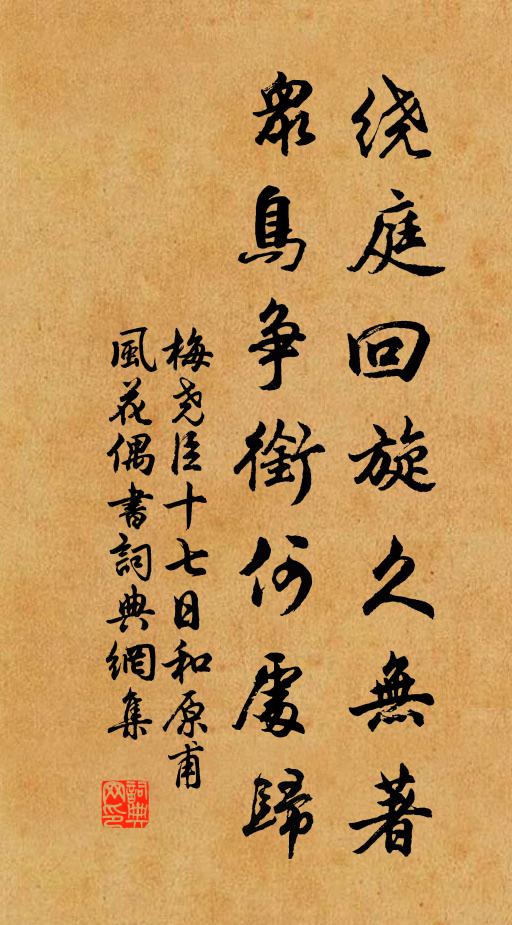 绕庭回旋久無著
眾鳥争銜何處歸
梅尧臣十七日和原甫
風花偶書詞典網集
詞典网印